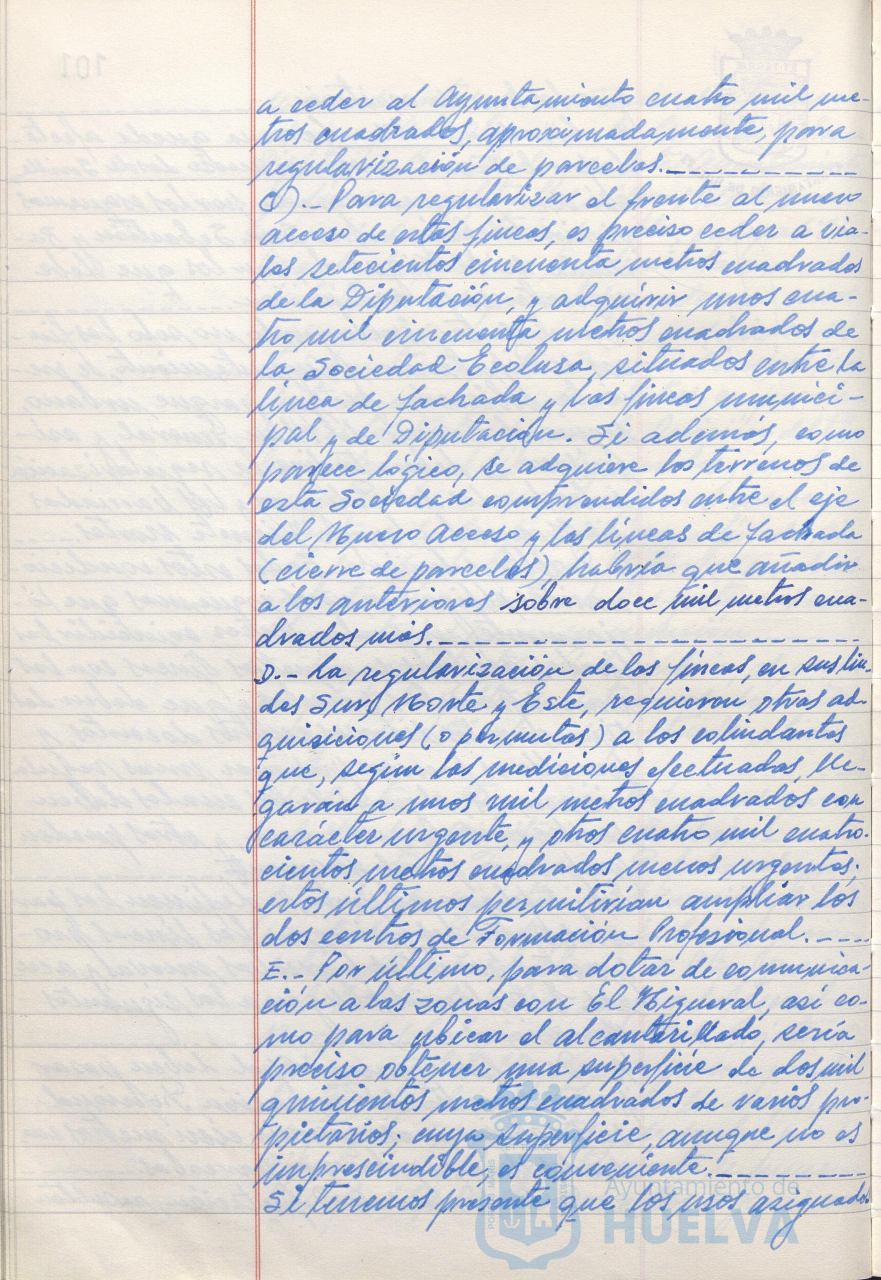 a ceder al Ayuntamiento cuatro mil me-
tros cuadrados, aproximadamente, para
regularización de parcelas.
C).- Para regularizar el frente al nuevo
acceso de estas fincas, es preciso ceder a via-
les setecientos cincuenta metros cuadrados
de la Diputación, y adquirir unos cua-
tro mil cincuenta metros cuadrados de
la Sociedad Ecolusa, situados entre la
línea de fachada y las fincas munici-
pal y de Diputación. Si además, como
parece lógico, se adquiere los terrenos de
esta Sociedad comprendidos entre el eje
del Nuevo Acceso y las líneas de fachada
(cierre de parcelas) habría que añadir
a los anteriores sobre doce mil metros cua-
drados más.
D.- La regularización de las fincas, en sus lin-
des Sur, Norte y Este, requieren otras ad-
quisiciones (o permutas) a los colindantes
que, según las mediciones efectuadas, lle-
garán a unos mil metros cuadrados con
carácter urgente, y otros cuatro mil cuatro-
cientos metros cuadrados menos urgentes;
estos últimos permitirían ampliar los
dos centros de Formación Profesional.
E.- Por último, para dotar de comunica-
ción a las zonas con El Higueral, así co-
mo para ubicar el alcantarillado, sería
preciso obtener una superficie de dos mil
quinientos metros cuadrados de varios pro-
pietarios; cuya superficie, aunque no es
imprescindible, es conveniente.
Si tenemos presente que los usos asignados
Ayuntamiento de
HUELVA
101